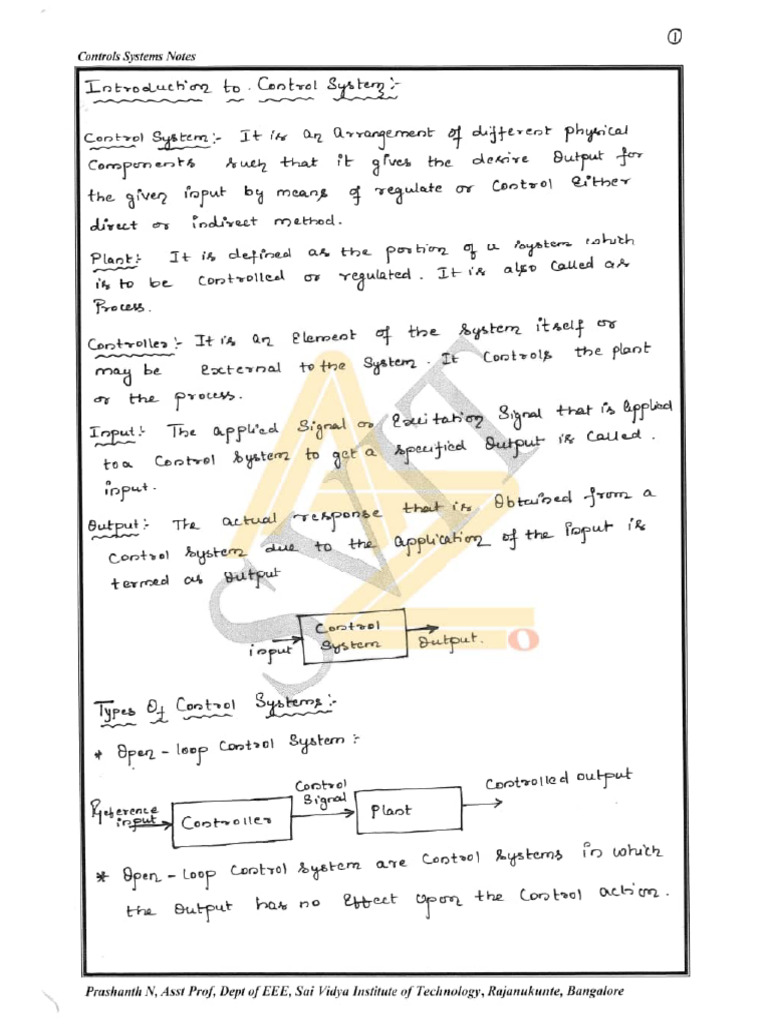 ①
Controls Systems Notes
Introduction to Control System:-
Control System:- It is an Arrangement of different physical
Components such that it gives the desire Output for
the given input by means of regulate or Control Either
direct or indirect method.
Plant:- It is defined as the portion of a system which
is to be Controlled or regulated. It is also called as
Process.
Controller:- It is an Element of the system itself or
may be External to the System. It Controls the plant
or the process.
Input:- The applied Signal or Excitation Signal that is applied
to a Control System to get a specified Output is called.
input.
Output:- The actual response that is Obtained from a
Control System due to the application of the input is
termed as Output
input
Control
System
Output.
Types Of Control Systems:-
* Open-loop Control System:-
Reference
input
Controller
Control
Signal
Plant
Controlled output
* Open-Loop Control System are Control Systems in which
the Output has no Effect Upon the Control action.
SVIT
Prashanth N, Asst Prof, Dept of EEE, Sai Vidya Institute of Technology, Rajanukunte, Bangalore